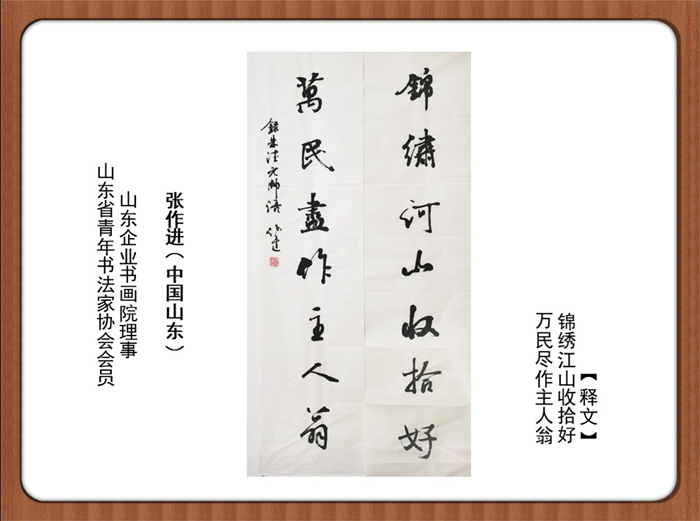 錦繡河山收拾好
萬民盡作主人翁
錄朱德元帥詩 作進
【释文】
锦绣江山收拾好
万民尽作主人翁
张作进（中国山东）
山东企业书画院理事
山东省青年书法家协会会员